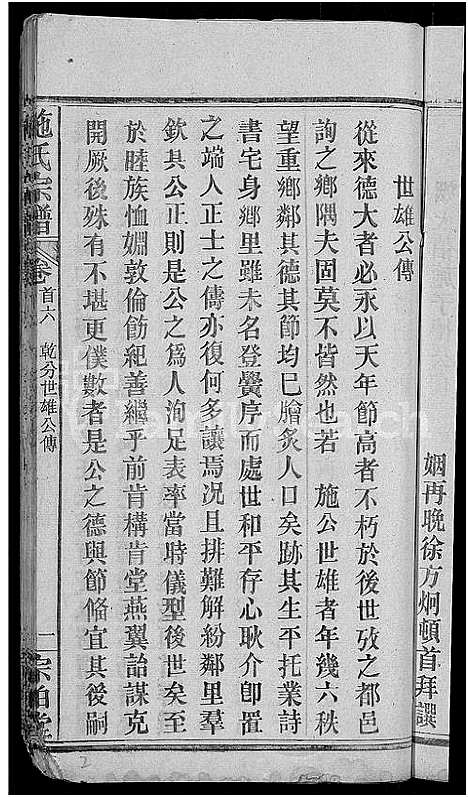 姻再晚徐方炯頓首拜譔
世雄公傳
從來德大者必永以天年節高者不朽於後世攷之都邑
詢之鄉隅夫固莫不皆然也若　施公世雄者年幾六秩
望重鄉鄰其德其節均已膾炙人口矣跡其生平托業詩
書宅身鄉里雖未名登黌序而處世和平存心耿介卽置
之端人正士之儔亦復何多讓焉况且排難解紛鄰里羣
欽其公正則是公之爲人洵足表率當時儀型後世矣至
於睦族恤婣敦倫飭紀善繼乎前肯構肯堂燕翼詒謀克
開厥後殊有不堪更僕數者是公之德與節偹宜其後嗣
施氏宗譜
卷首六　乾分世雄公傳
一
2